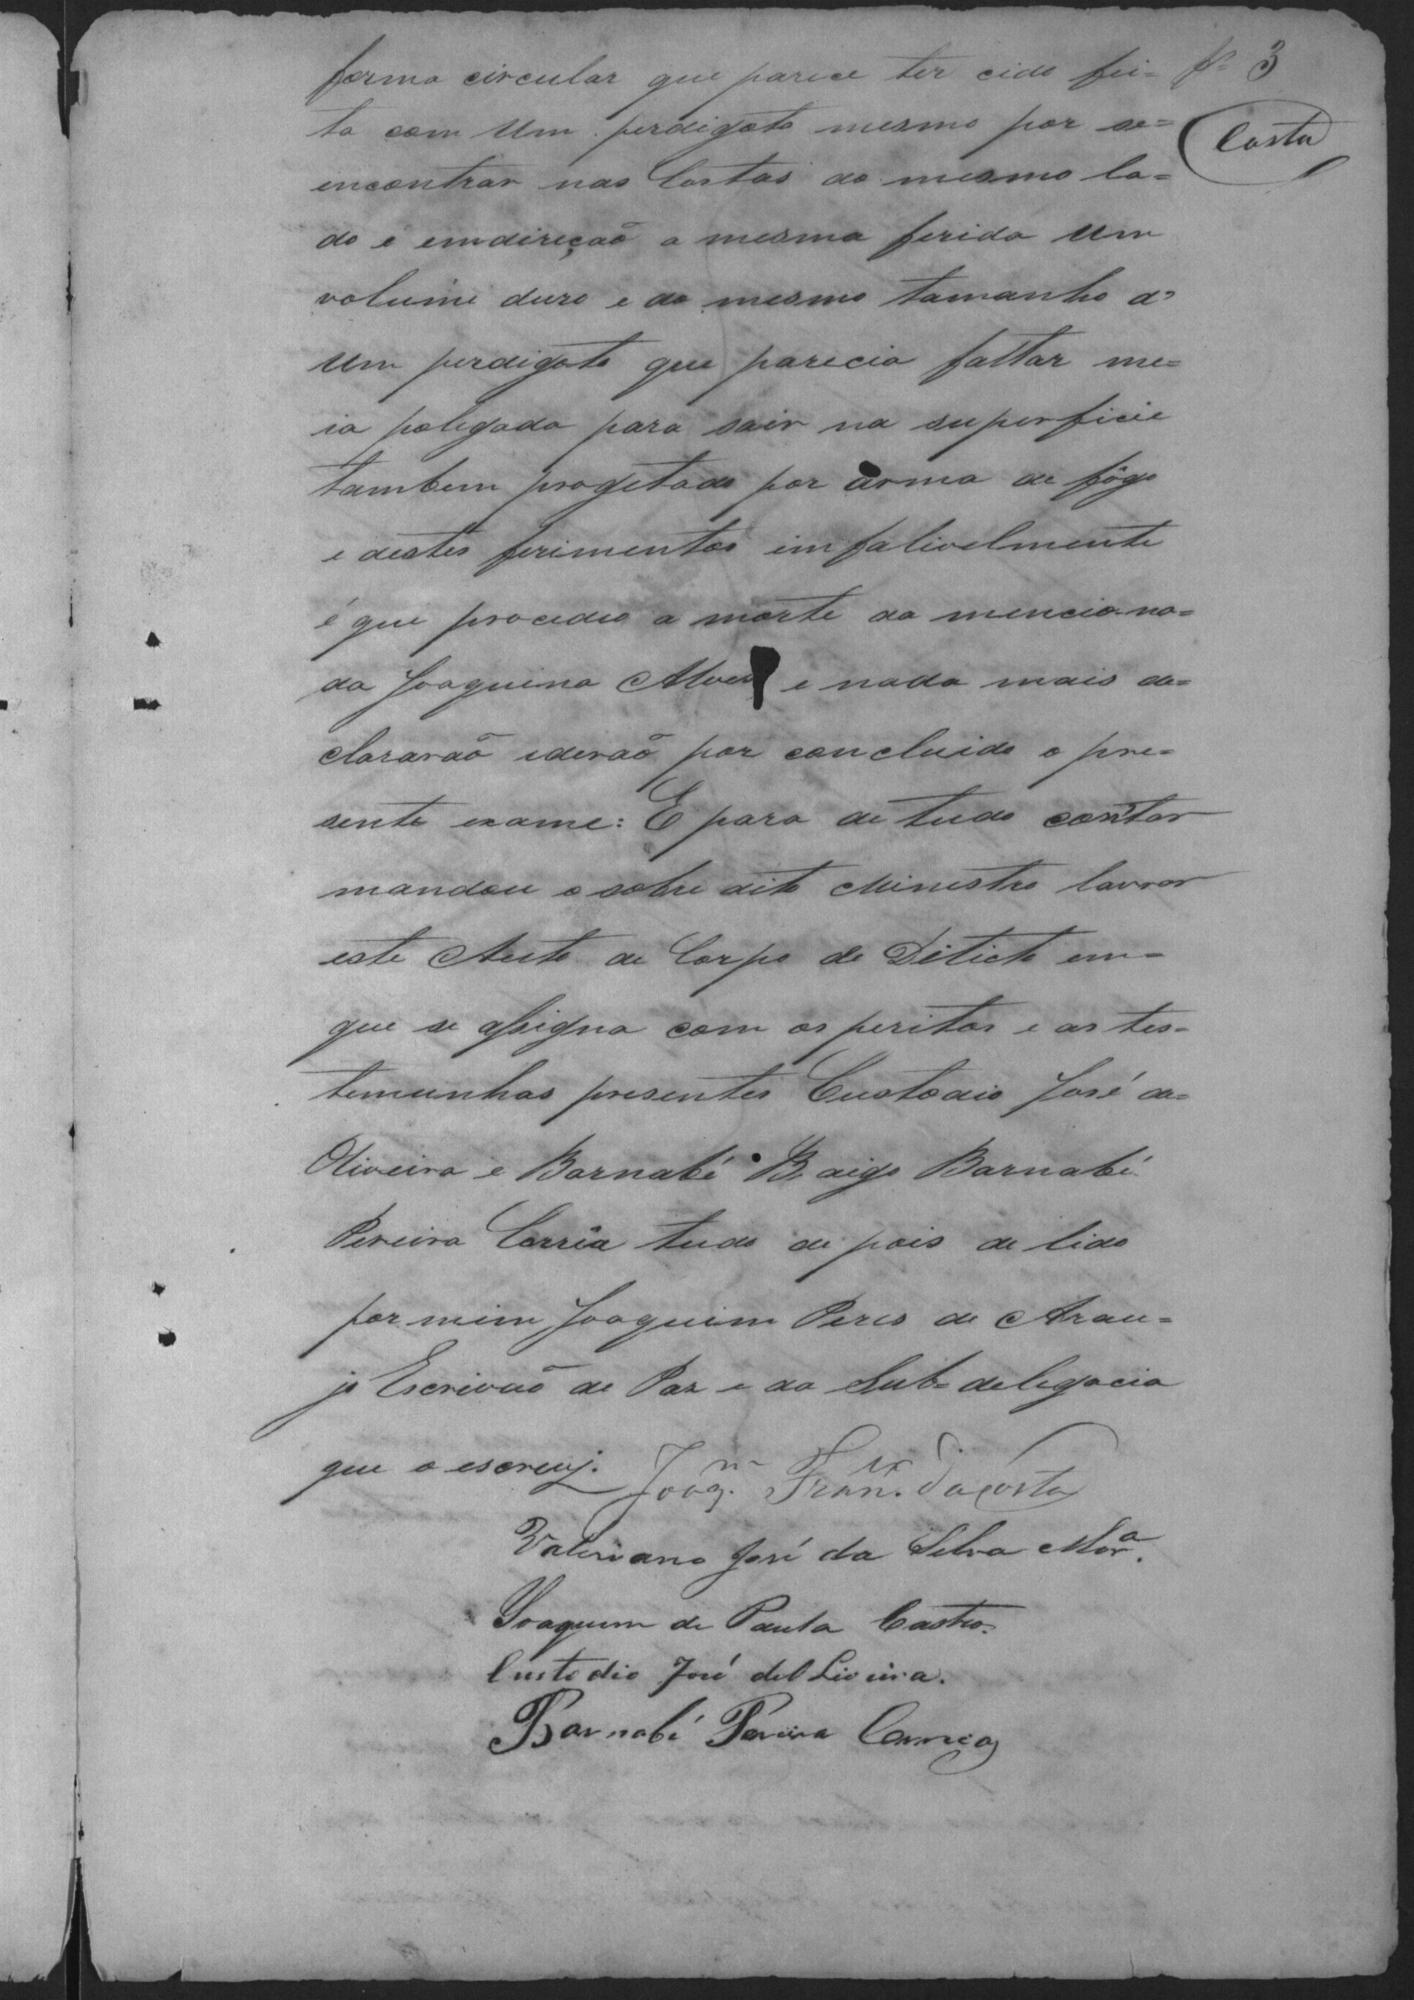 forma circular que parece ter cido fei= fs 3
ta com Um perdigoto mesmo por se= Costa
encontrar nas Costas do mesmo la=
do e emdireçaõ a mesma ferida Um
volume duro e do mesmo tamanho d'
Um perdigoto que parecia faltar me=
ia polegada para sair na superficie
tambem progetado por arma de fôgo
e destes ferimentos imfalivelmente
é que procedeo a morte da menciona=
da Joaquina Alves e nada mais de=
clararaõ ederaõ por concluido o pre=
sente exame: E para de tudo contar
mandou o sobre dito Ministro lavrar
este Auto de Corpo de Diticto em=
que se assigna com os peritos e as tes=
temunhas presentes Custodio José de=
Oliveira e Barnabé B. digo Barnabé
Pereira Corrêa tudo de pois de lido
por mim Joaquim Peres de Arau=
jo Escrivaõ de Paz e da Sub=delegacia
que o escrevj. Joaqm. Franco. da Costa
Valeriano José da Silva Mora.
Joaquim de Paula Castro.
Custodio José de Oliveira.
Barnabé Pereira Correa